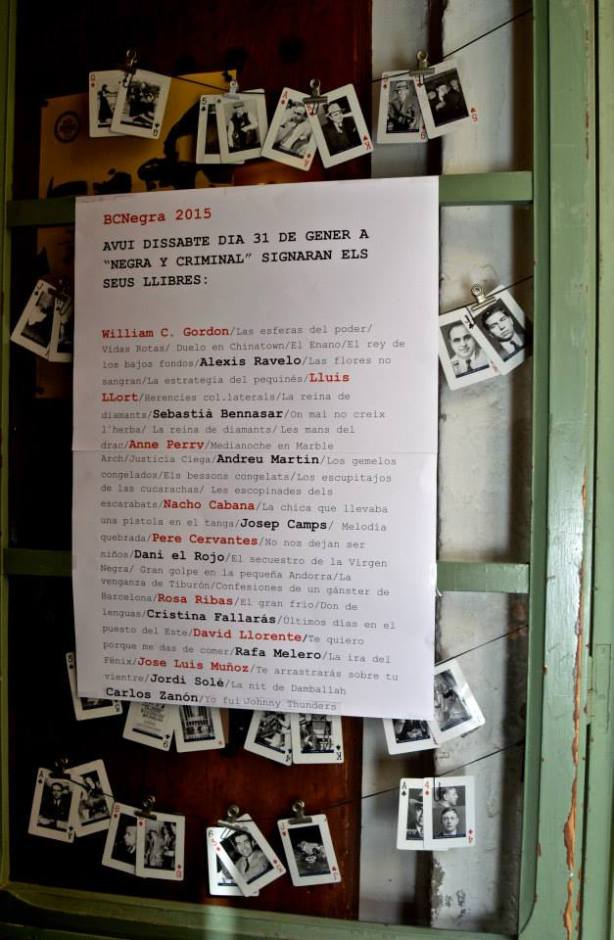 BCNegra 2015
AVUI DISSABTE DIA 31 DE GENER A
“NEGRA Y CRIMINAL” SIGNARAN ELS
SEUS LLIBRES:
William C. Gordon/Las esferas del poder/
Vidas Rotas/ Duelo en Chinatown/El Enano/El rey de
los bajos fondos/Alexis Ravelo/Las flores no
sangran/La estrategia del pequinés/Lluís
Llort/Herencies col.laterals/La reina de
diamants/Sebastià Bennasar/On mai no creix
l'herba/ La reina de diamants/ Les mans del
drac/Anne Perry/Medianoche en Marble
Arch/Justicia Ciega/Andreu Martín/Los gemelos
congelados/Els bessons congelats/Los escupitajos
de las cucarachas/ Les escopinades dels
escarabats/Nacho Cabana/La chica que llevaba
una pistola en el tanga/Josep Camps/ Melodia
quebrada/Pere Cervantes/No nos dejan ser
niños/Dani el Rojo/El secuestro de la Virgen
Negra/ Gran golpe en la pequeña Andorra/La
venganza de Tiburón/Confesiones de un gánster de
Barcelona/Rosa Ribas/El gran frío/Don de
lenguas/Cristina Fallarás/Últimos días en el
puesto del Este/David Llorente/Te quiero
porque me das de comer/Rafa Melero/La ira del
Fénix/Jose Luis Muñoz/Te arrastrarás sobre tu
vientre/Jordi Solé/La nit de Damballah
Carlos Zanón/Yo fui Johnny Thunders